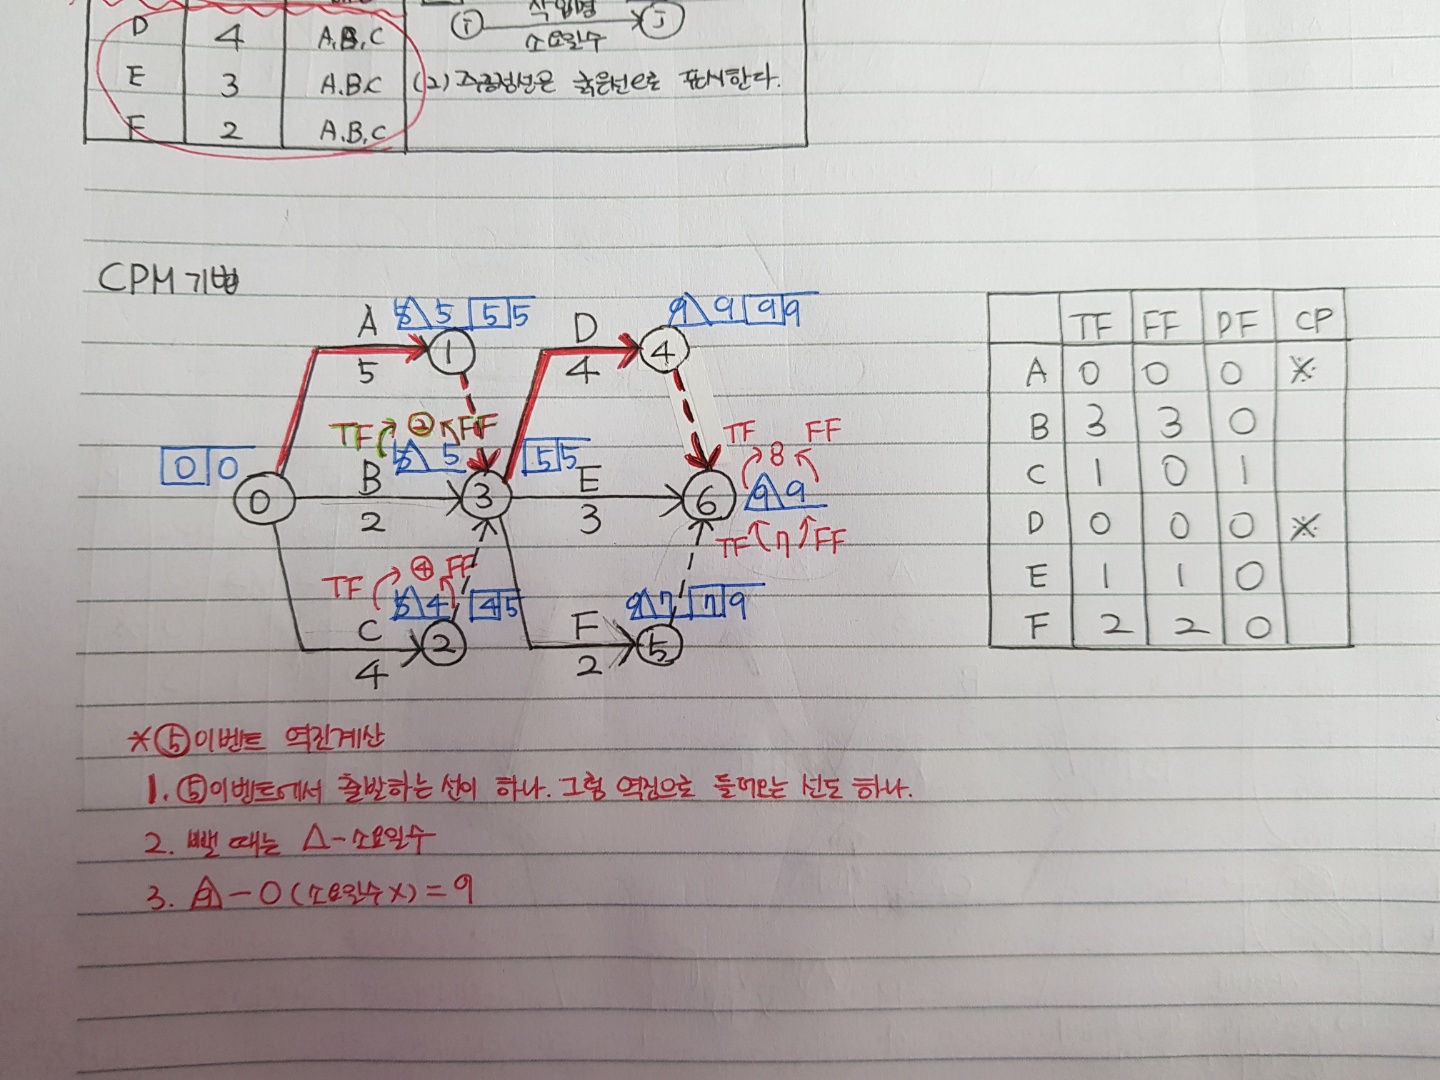 작업명
D 4 A,B,C i j
소요일수
E 3 A.B.C (2) 주공정선은 굵은선으로 표시한다.
F 2 A.B,C
CPM 기법
A 5 5 5 5 D 9 9 9 9
5 1 4 4
TF 2 FF TF FF
0 0 5 5 5 5 8
0 B 2 3 E 3 6 9 9
TF 4 FF TF 7 FF
5 4 4 5 9 7 7 9
C 4 2 F 2 5
TF FF DF CP
A 0 0 0 ※
B 3 3 0
C 1 0 1
D 0 0 0 ※
E 1 1 0
F 2 2 0
*⑤이벤트 역진계산
1. ⑤이벤트에서 출발하는 선이 하나. 그럼 역진으로 들어오는 선도 하나.
2. 뺄 때는 △-소요일수
3. △ - 0 (소요일수 X) = 9